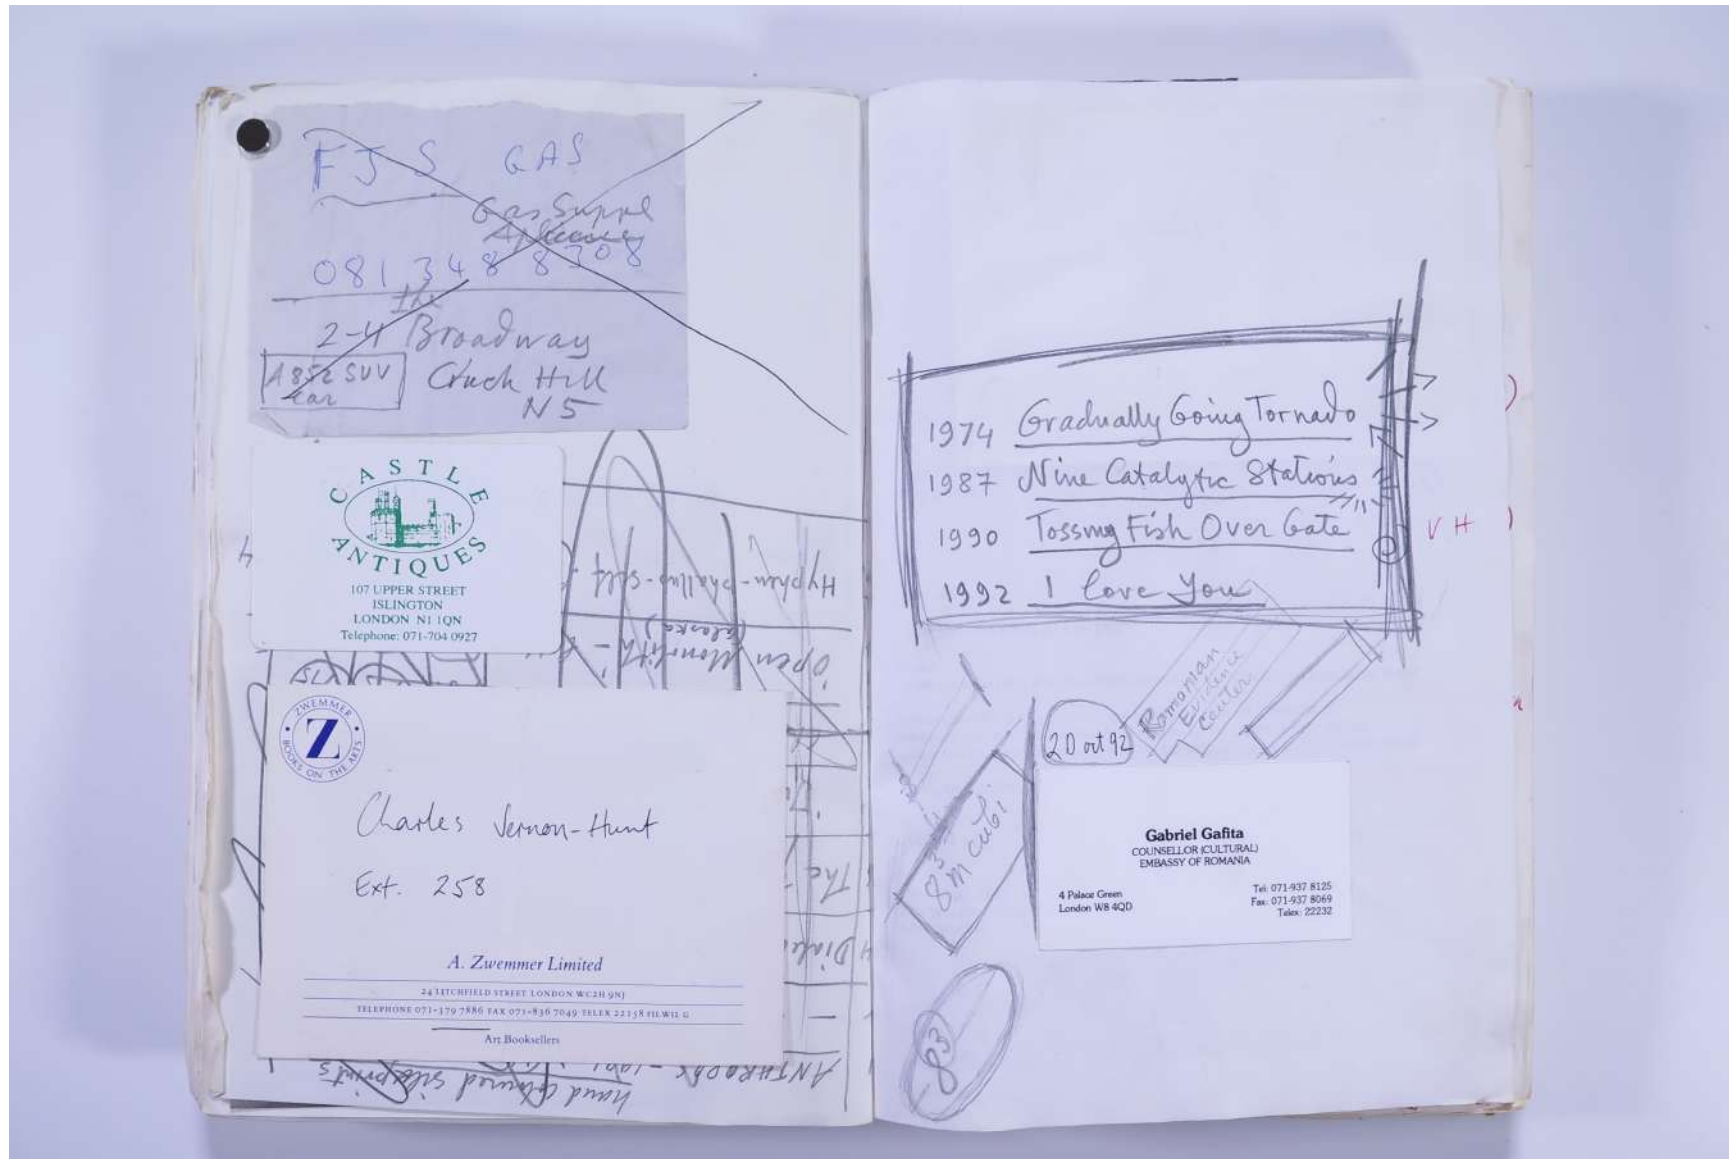 FJS GAS
Gas Suppl
081 348 8308
the
2-4 Broadway
A852 SUV
car
Crouch Hill
N5
CASTLE
ANTIQUES
107 UPPER STREET
ISLINGTON
LONDON N1 1QN
Telephone: 071-704 0927
Hyphen-phallus-self
(alaska)
Open Monolith -
ZWEMMER
Z
BOOKS ON THE ARTS
Charles Vernon-Hunt
Ext. 258
The
A. Zwemmer Limited
24 LITCHFIELD STREET LONDON WC2H 9NJ
TELEPHONE 071-379 7886 FAX 071-836 7049 TELEX 22158 FILWIL G
Art Booksellers
hand coloured silkprints
1974 Gradually Going Tornado
1987 Nine Catalytic Stations
1990 Tossing Fish Over Gate
1992 I love You
VH
Romanian
Evidence
Center
20 oct 92
8m cubi
3
Gabriel Gafita
COUNSELLOR (CULTURAL)
EMBASSY OF ROMANIA
4 Palace Green
London W8 4QD
Tel: 071-937 8125
Fax: 071-937 8069
Telex: 22232
83